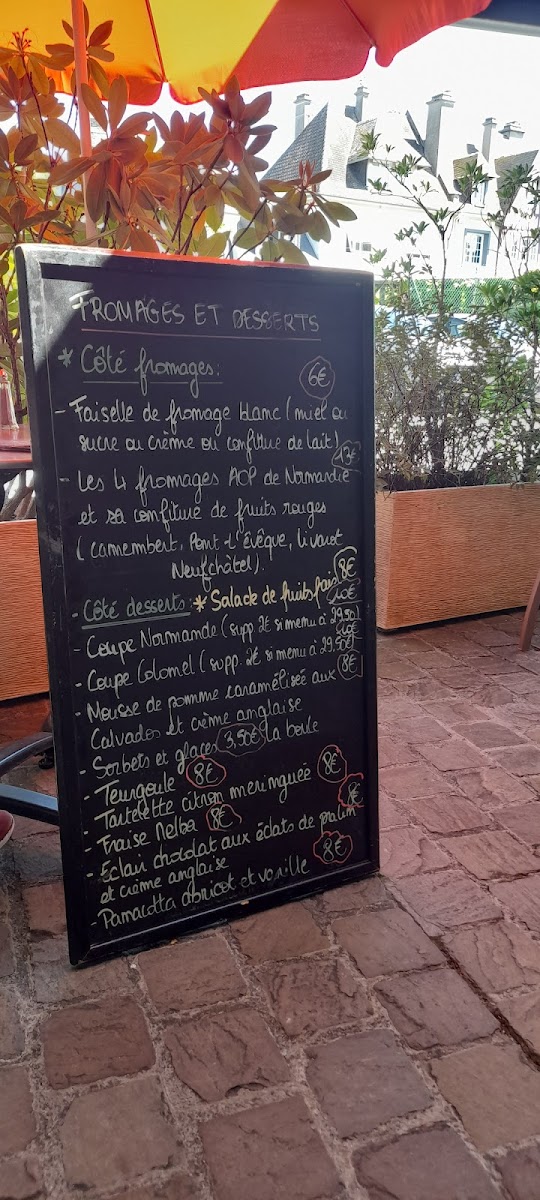 FROMAGES ET DESSERTS
* Côté fromages: 6€
- Faiselle de fromage blanc (miel ou
sucre ou crème ou confiture de lait)
13€
- Les 4 fromages AOP de Normandie
et sa confiture de fruits rouges
(camembert, Pont-L'évêque, Livarot
Neufchâtel).
8€
- Côté desserts: * Salade de fruits frais
10€
- Coupe Normande (supp 2€ si menu à 29,50)
10€
- Coupe Colonel (supp. 2€ si menu à 29,50€)
- Mousse de pomme caramélisée aux 8€
Calvados et crème anglaise
- Sorbets et glaces 3,50€ la boule
- Teurgoule 8€
- Tartelette citron meringuée 8€
- Fraise Melba 8€
- Éclair chocolat aux éclats de pralin 8€
et crème anglaise
- Panacotta abricot et vanille 8€